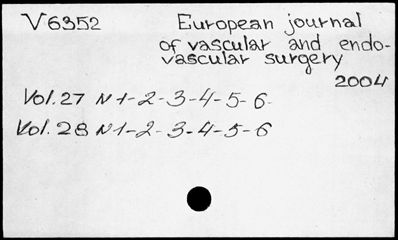 V6352 European journal
of vascular and endo-
vascular surgery
2004
Vol. 27 N 1-2-3-4-5-6
Vol. 28 N 1-2-3-4-5-6